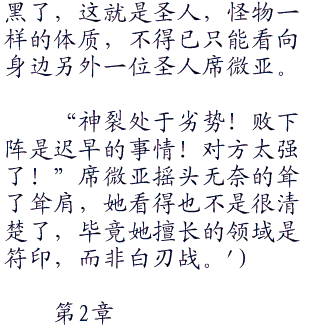 黑了，这就是圣人，怪物一
样的体质，不得已只能看向
身边另外一位圣人席微亚。
“神裂处于劣势！败下
阵是迟早的事情！对方太强
了！”席微亚摇头无奈的耸
了耸肩，她看得也不是很清
楚了，毕竟她擅长的领域是
符印，而非白刃战。')
第2章